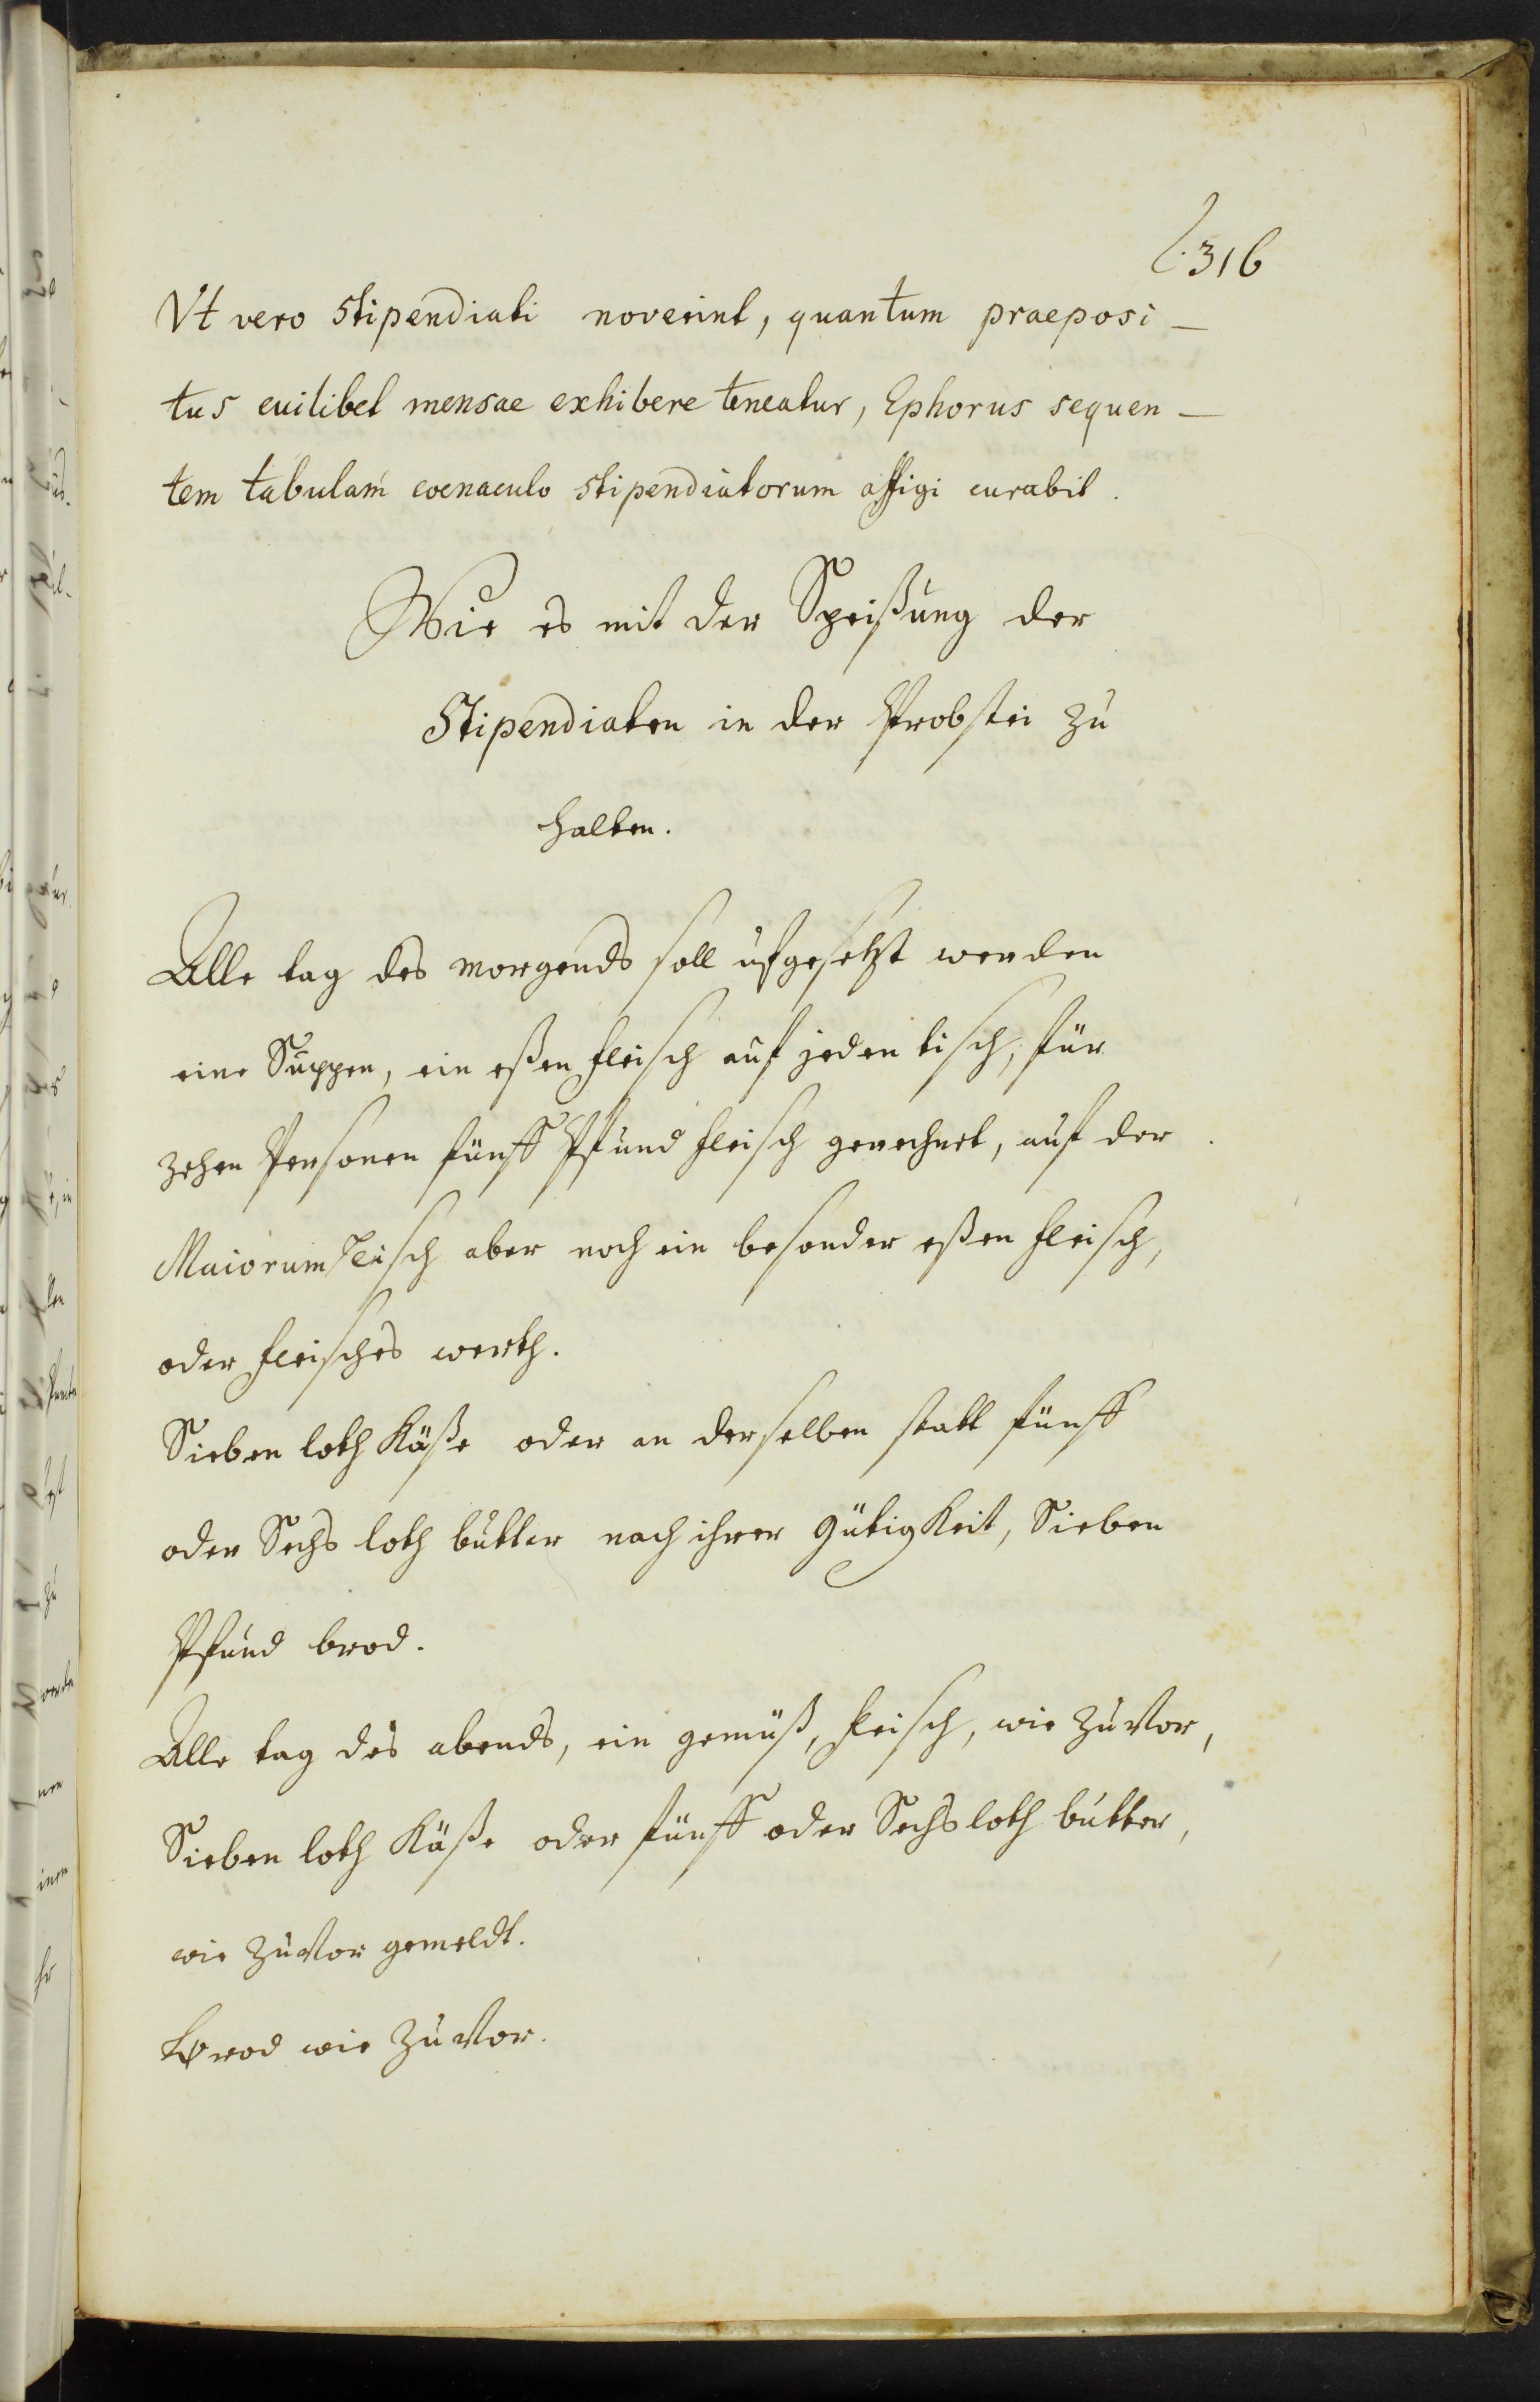 l. 316
Vt vero Stipendiati noverint, quantum praeposi-
tus cuilibet mensae exhibere teneatur, Ephorus sequen-
tem tabulam coenaculo Stipendiatorum affigi curabit.
Wie es mit der Speißung der
Stipendiaten in der Probstei zu
halten.
Alle tag des morgends soll ufgesetzt werden
eine Suppen, ein eßen fleisch auf jeden tisch, für
zehen Personen fünff Pfund fleisch gerechnet, auf der
Maiorum Tisch aber noch ein besonder eßen fleisch,
oder fleisches werth.
Sieben loth Käße oder an derselben statt fünff
oder Sechs loth butter nach ihrer gütigkeit, Sieben
Pfund brod.
Alle tag des abends, ein gemüß, fleisch, wie zuvor,
Sieben loth Käße oder fünff oder Sechs loth butter,
wie zuvor gemeldt.
Brod wie zuvor.